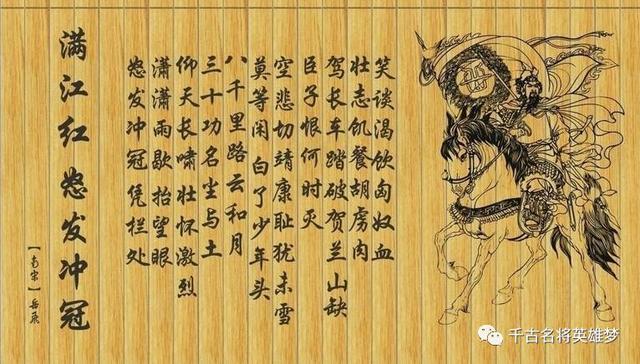 满江红 怒发冲冠
【南宋】岳飞
怒发冲冠凭栏处
潇潇雨歇抬望眼
仰天长啸壮怀激烈
三十功名尘与土
八千里路云和月
莫等闲 白了少年头
空悲切靖康耻犹未雪
臣子恨何时灭
驾长车踏破贺兰山缺
壮志饥餐胡虏肉
笑谈渴饮匈奴血
千古名将英雄梦